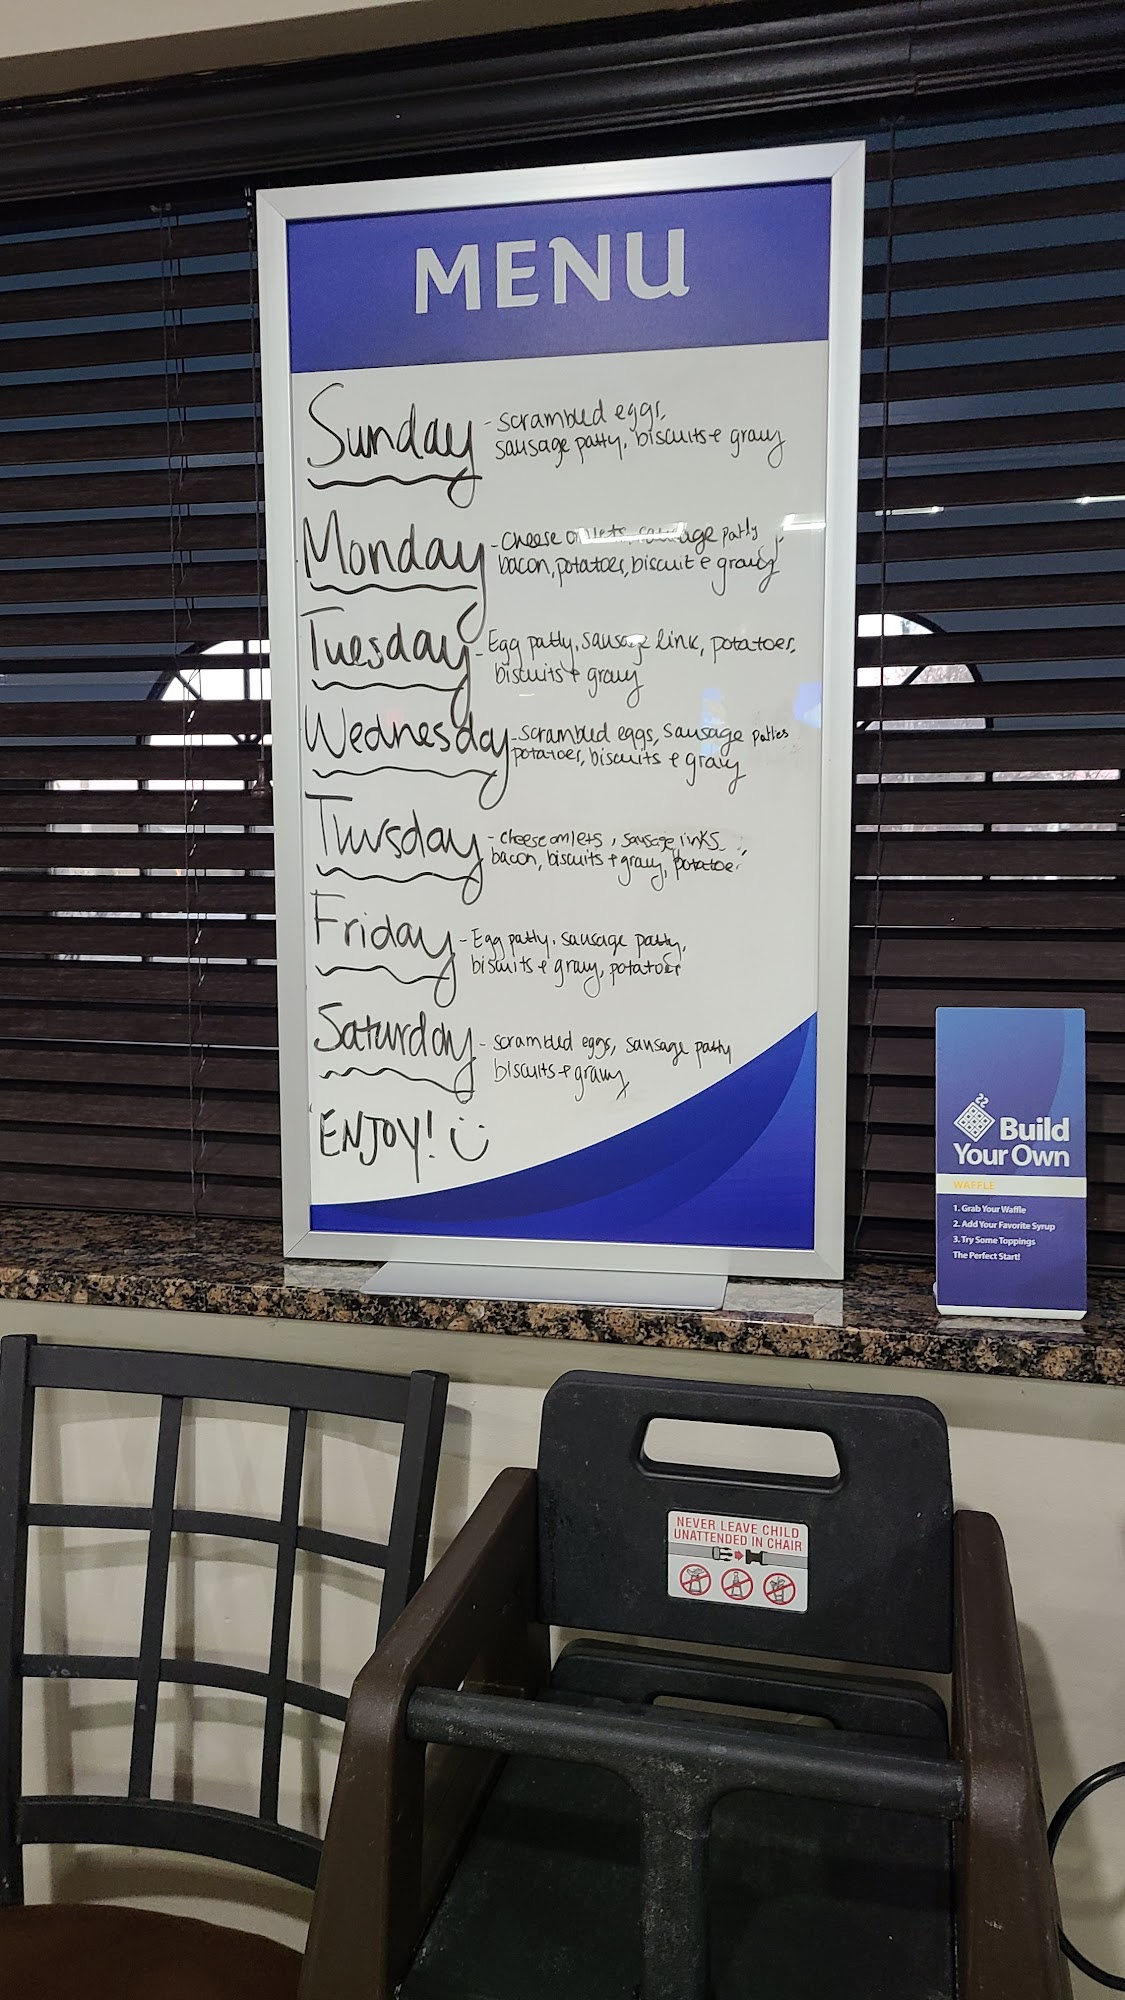 MENU
Sunday - scrambled eggs,
sausage patty, biscuits + gravy
Monday - Cheese omlets, sausage patty
bacon, potatoes, biscuit + gravy
Tuesday - Egg patty, sausage link, potatoes,
biscuits + gravy
Wednesday - scrambled eggs, sausage patties
potatoes, biscuits + gravy
Thursday - cheese omlets, sausage links
bacon, biscuits + gravy, potatoe
Friday - Egg patty, sausage patty,
biscuits + gravy, potatoes
Saturday - scrambled eggs, sausage patty
biscuits + gravy
ENJOY! :)
Build
Your Own
WAFFLE
1. Grab Your Waffle
2. Add Your Favorite Syrup
3. Try Some Toppings
The Perfect Start!
NEVER LEAVE CHILD
UNATTENDED IN CHAIR